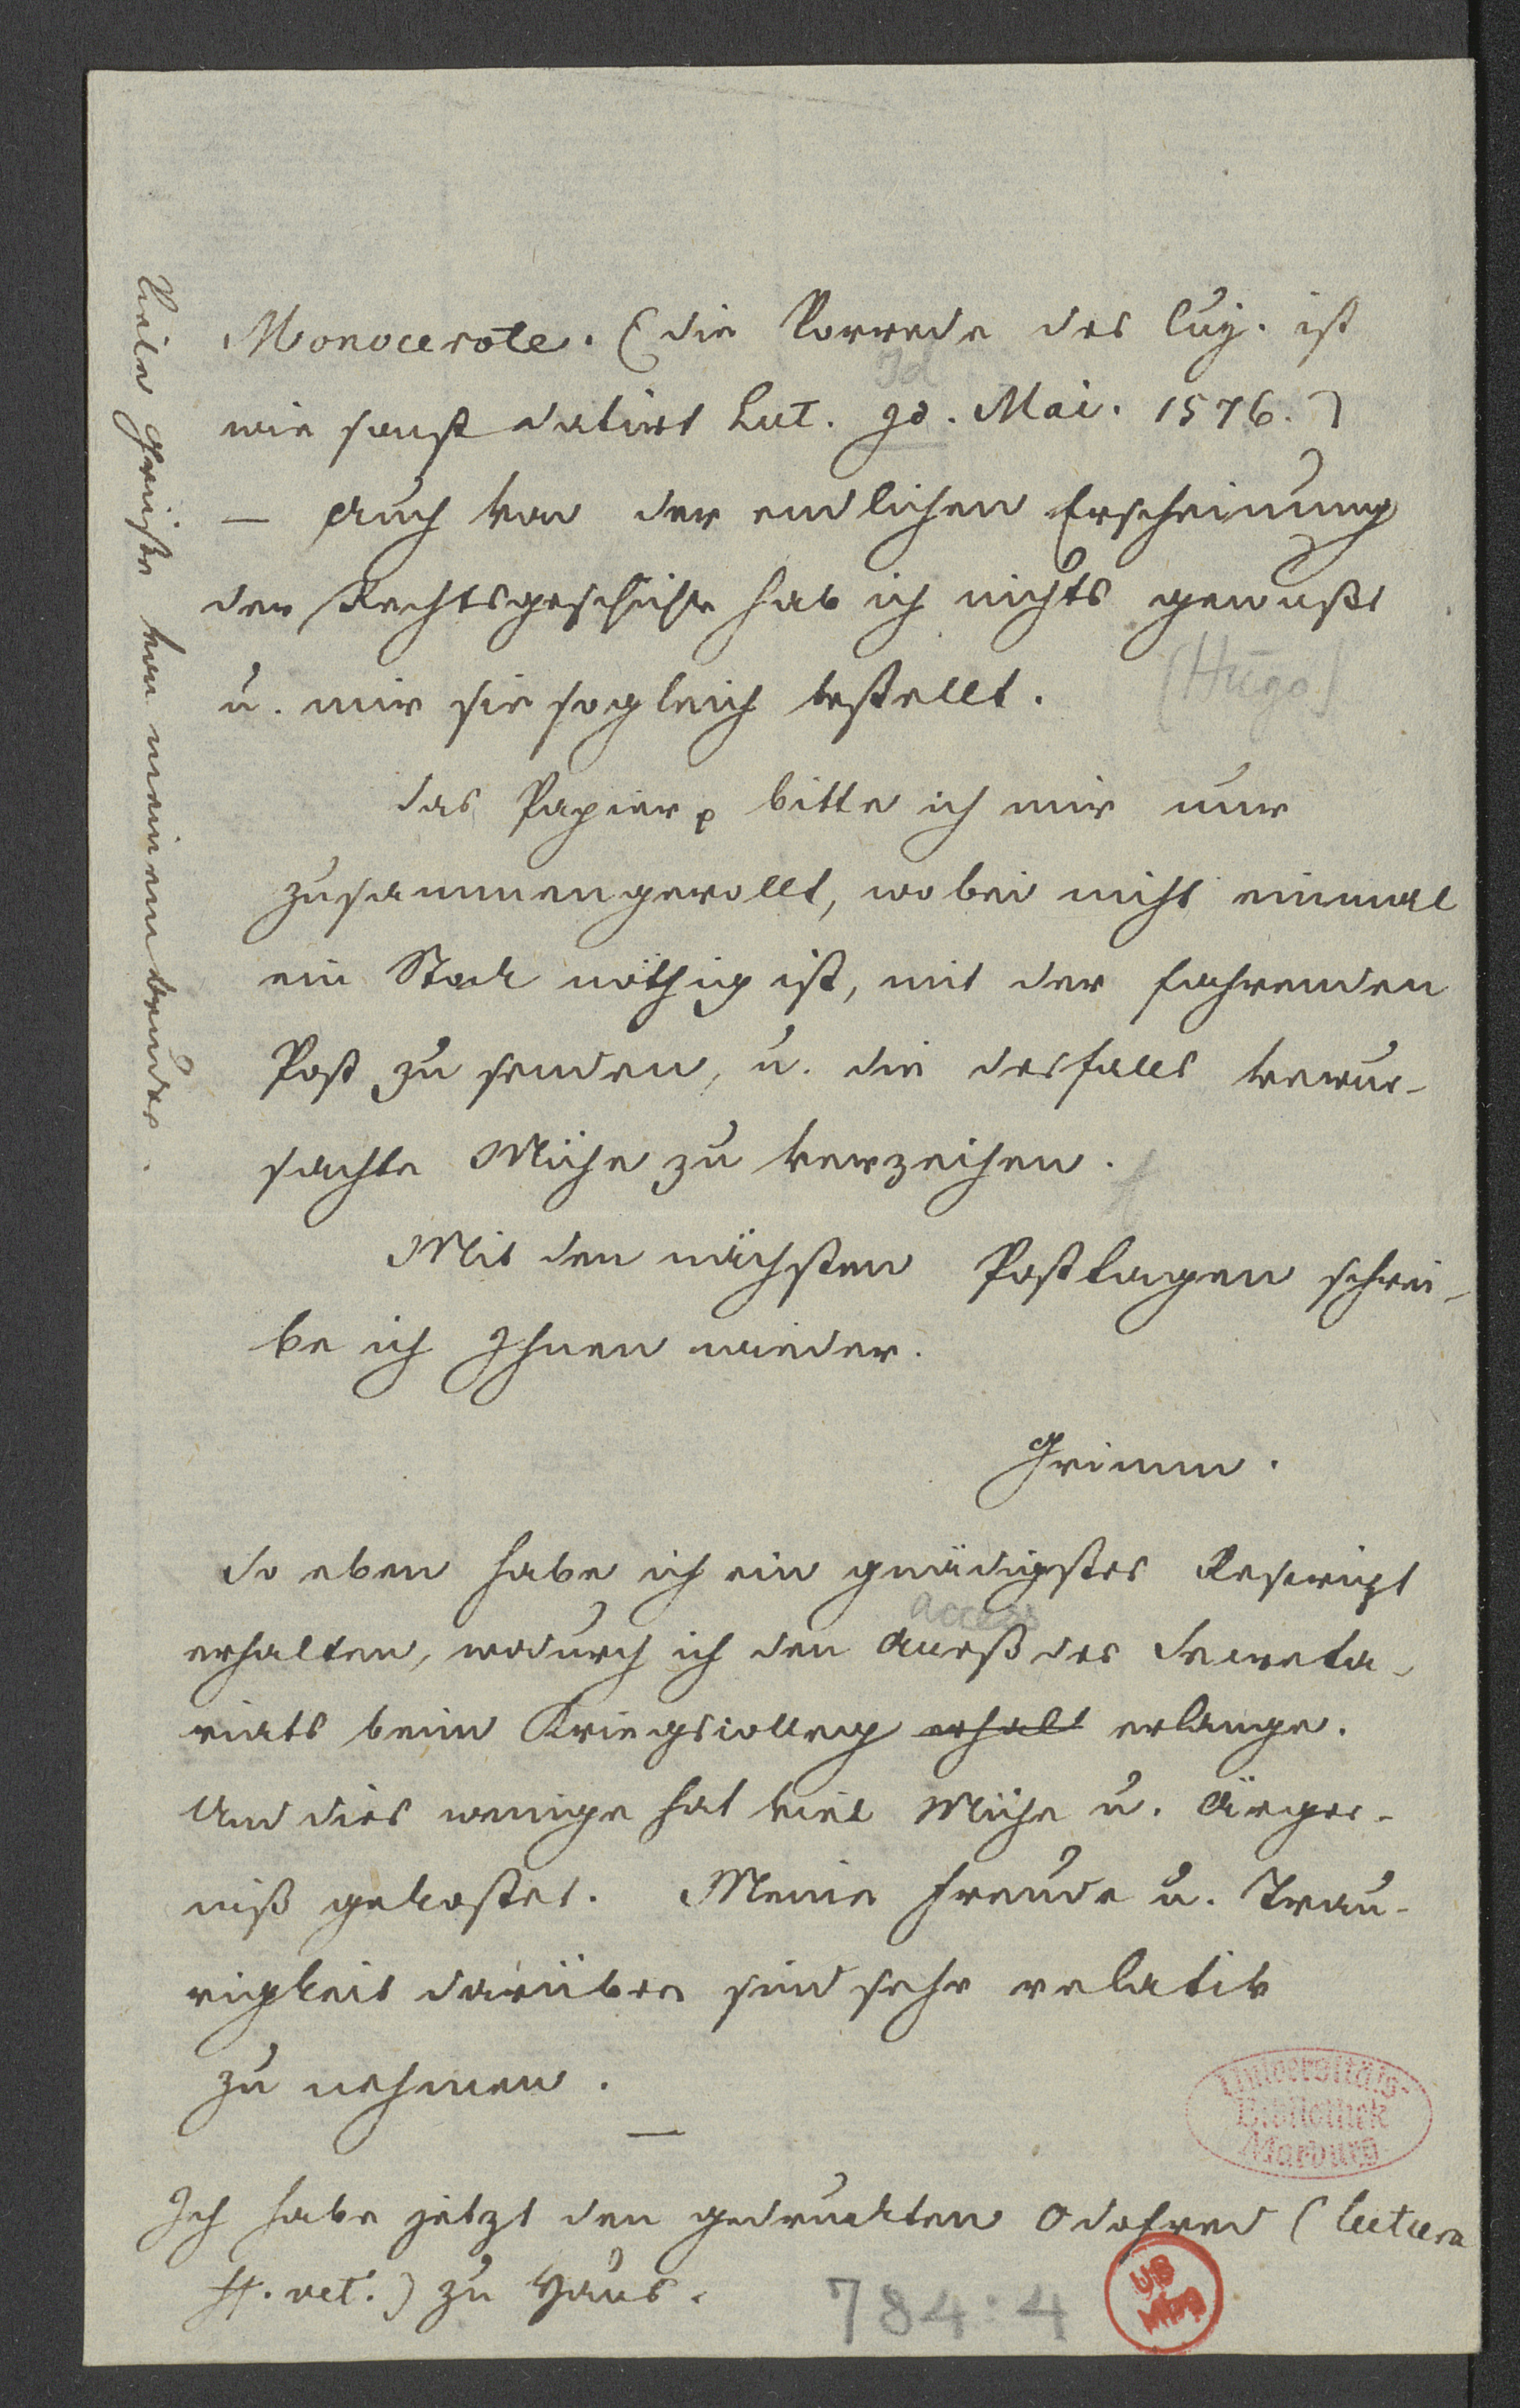 Monocerote. (die Vorrede des Cuj. ist
Id
wie sonst datirt Lut. Jd. Mai. 1576.)
— Auch von der endlichen Erscheinung
der Rechtsgeschichte hab ich nichts gewußt
u. mir sie sogleich bestellt. [Hugo]
das Papier p bitte ich mir nur
zusammengerollt, wobei nicht einmal
ein Stock nöthig ist, mit der fahrenden
Post zu senden, u. die desfalls verur-
sachte Mühe zu verzeihen.
Mit den nächsten Posttagen schrei-
be ich Ihnen wieder.
Grimm.
So eben habe ich ein gnädigstes Rescript
access
erhalten, wodurch ich den Acceß des Secreta-
riats beim Kriegscolleg erhalt erlange.
Und dies wenige hat viel Mühe u. Ärger-
niß gekostet. Meine Freude u. Trau-
rigkeit darüber sind sehr relativ
zu nehmen.
—
Ich habe jetzt den gedruckten Odofred (lectura
ff. vet.) zu Haus.
Viele Grüße von meinem Bruder.
Universitäts-
Bibliothek
Marburg
784:4
UB
MRB